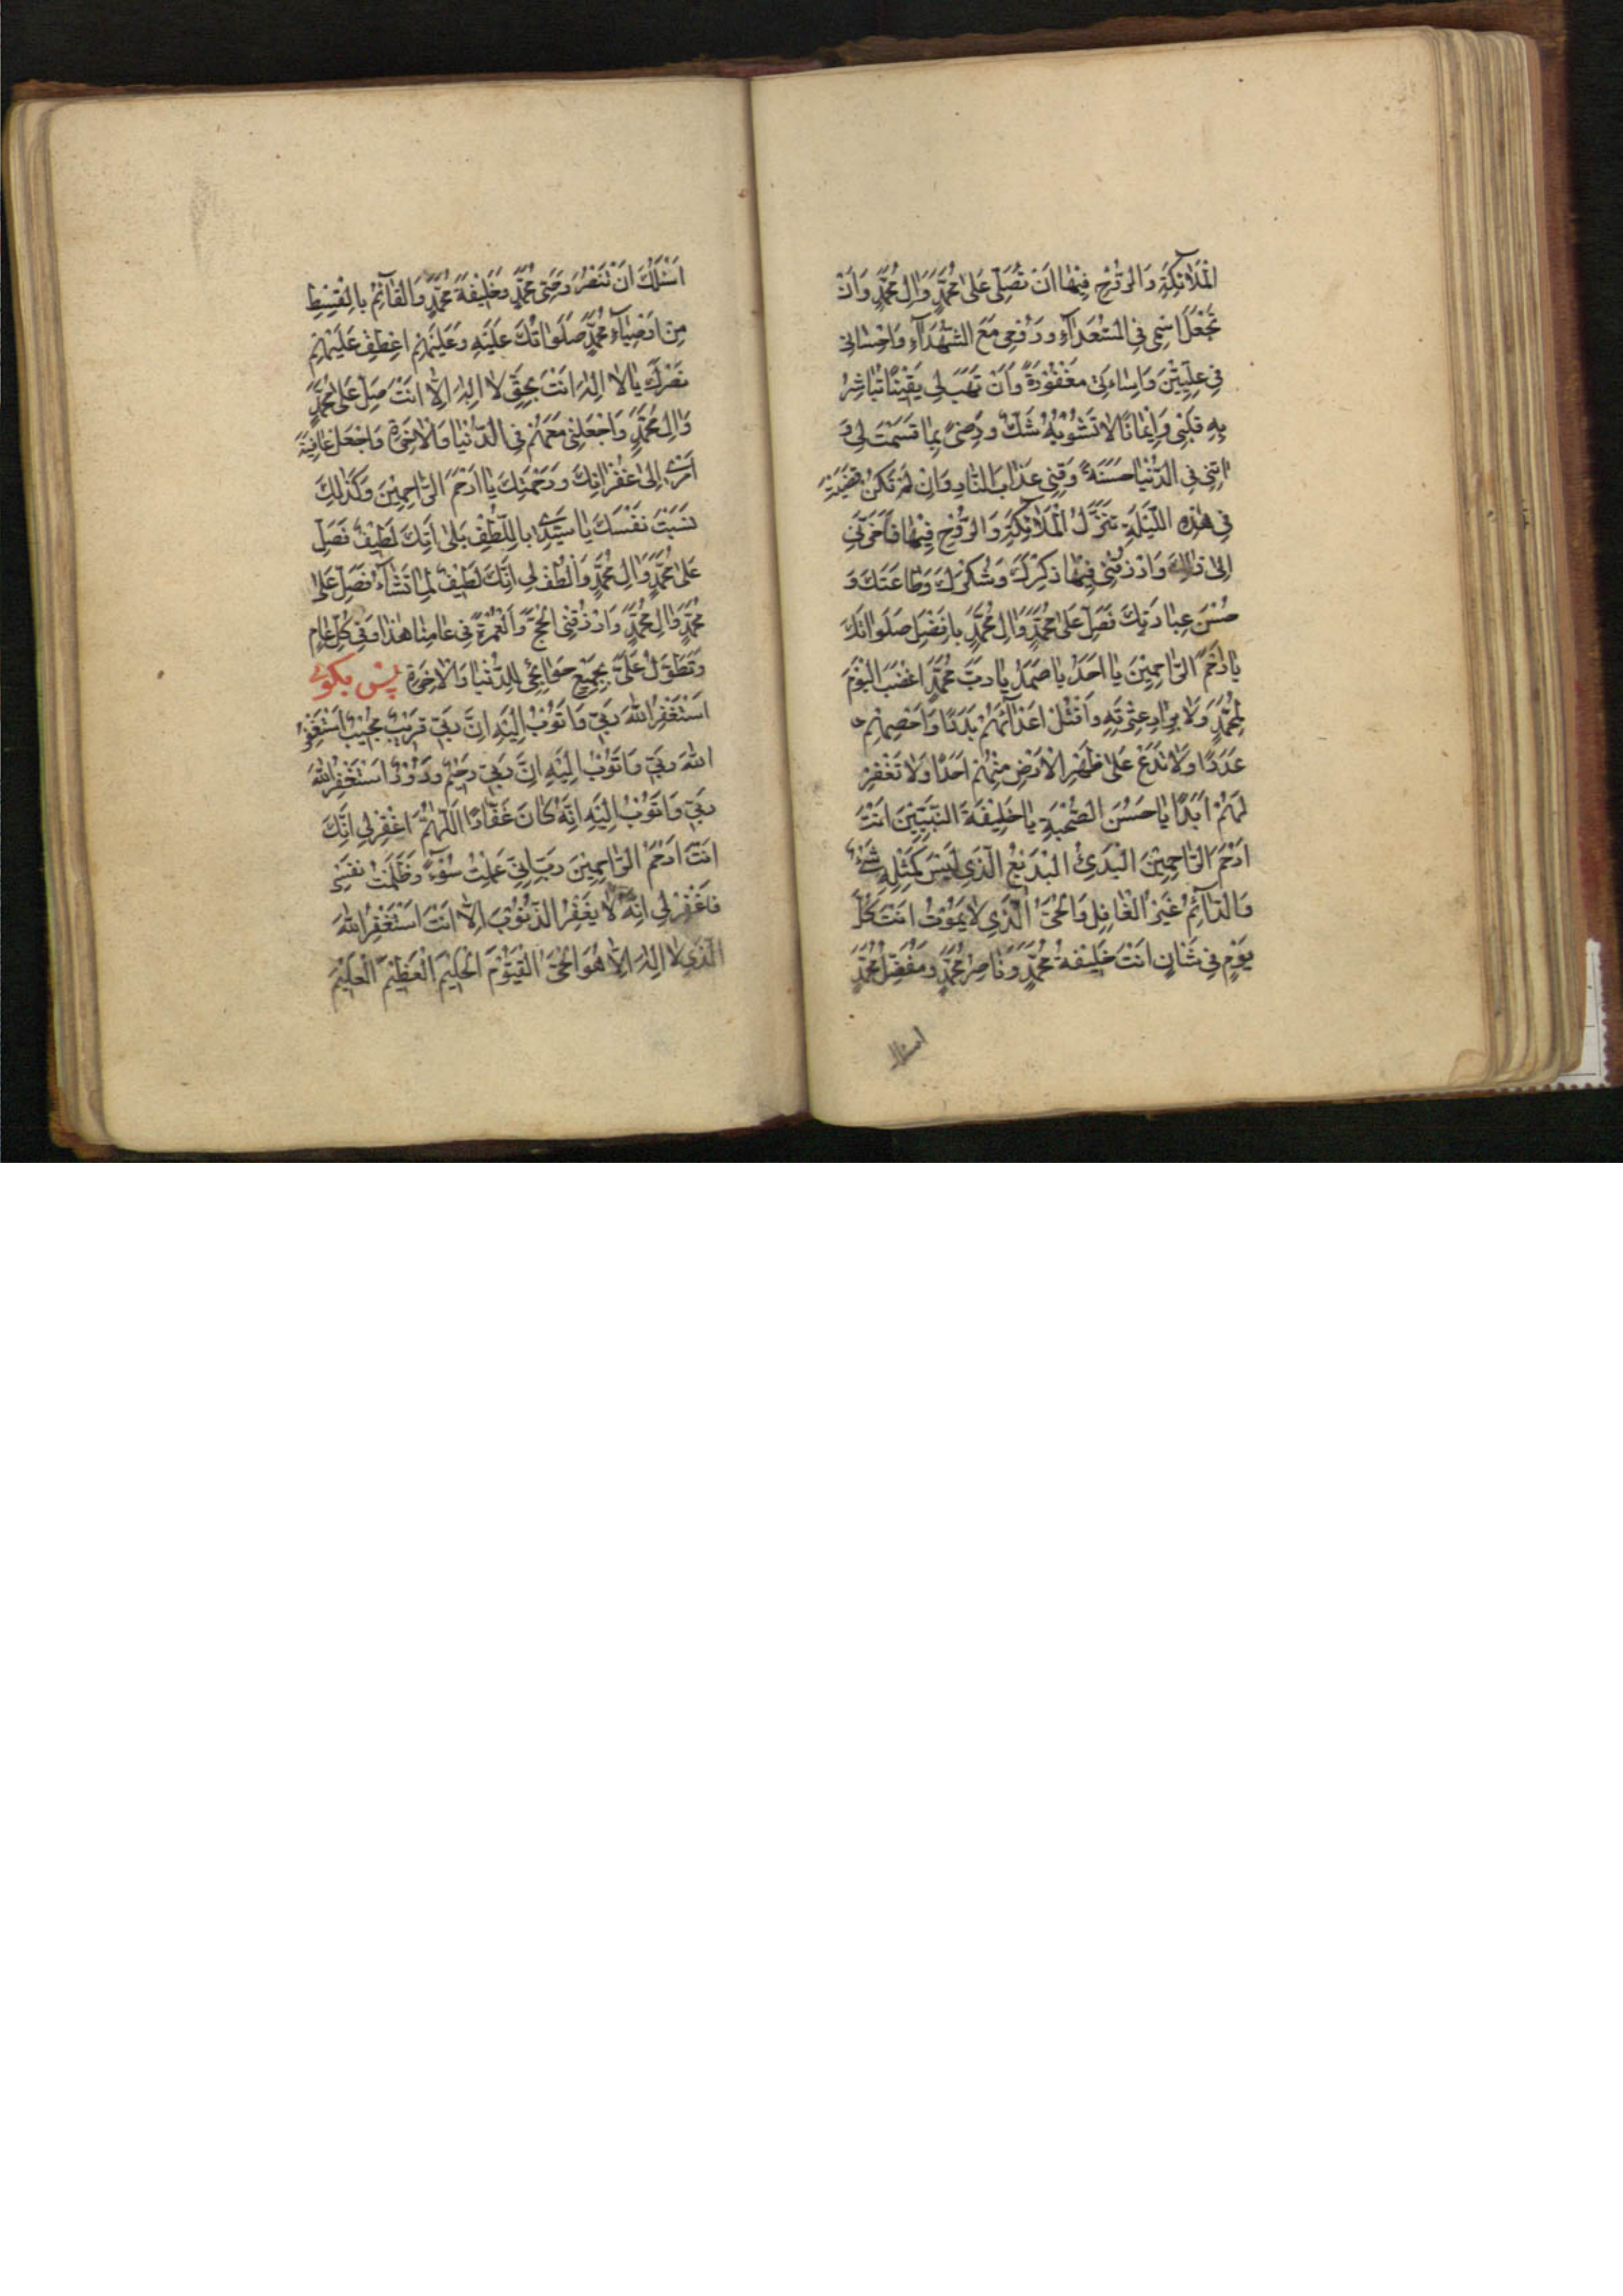 الْمَلَآئِكَةِ وَالرُّوْحِ فِيْهَا اَنْ تُصَلِّىَ عَلٰى مُحَمَّدٍ وَاٰلِ مُحَمَّدٍ وَاَنْ
تَجْعَلَ اسْمِى فِى السُّعَدَآءِ وَرُوْحِى مَعَ الشُّهَدَآءِ وَاِحْسَانِى
فِى عِلِّيِّيْنَ وَاِسَاءَتِى مَغْفُوْرَةً وَاَنْ تَهَبَ لِى يَقِيْنًا تُبَاشِرُ
بِهِ قَلْبِى وَاِيْمَانًا لَا يَشُوْبُهُ شَكٌّ وَرِضىً بِمَا قَسَمْتَ لِى وَ
اٰتِنِى فِى الدُّنْيَا حَسَنَةً وَقِنِى عَذَابَ النَّارِ وَاِنْ لَمْ تَكُنْ قَضَيْتَ
فِى هٰذِهِ اللَّيْلَةِ تَنَزُّلَ الْمَلَآئِكَةِ وَالرُّوْحِ فِيْهَا فَاَخِّرْنِى
اِلٰى ذٰلِكَ وَارْزُقْنِى فِيْهَا ذِكْرَكَ وَشُكْرَكَ وَطَاعَتَكَ وَ
حُسْنَ عِبَادَتِكَ فَصَلِّ عَلٰى مُحَمَّدٍ وَاٰلِ مُحَمَّدٍ بِاَفْضَلِ صَلَوَاتِكَ
يَا اَرْحَمَ الرَّاحِمِيْنَ يَا اَحَدُ يَا صَمَدُ يَا رَبَّ مُحَمَّدٍ اغْضَبِ الْيَوْمَ
لِمُحَمَّدٍ وَلِاَبْرَارِ عِتْرَتِهِ وَاقْتُلْ اَعْدَآئَهُمْ بَدَدًا وَاَحْصِهِمْ
عَدَدًا وَلَا تَدَعْ عَلٰى ظَهْرِ الْاَرْضِ مِنْهُمْ اَحَدًا وَلَا تَغْفِرْ
لَهُمْ اَبَدًا يَا حَسَنَ الصُّحْبَةِ يَا خَلِيْفَةَ النَّبِيِّيْنَ اَنْتَ
اَرْحَمُ الرَّاحِمِيْنَ الْبَدِىْءُ الْبَدِيْعُ الَّذِى لَيْسَ كَمِثْلِهِ شَىْءٌ
وَالدَّآئِمُ غَيْرُ الْغَافِلِ وَالْحَىُّ الَّذِى لَا يَمُوْتُ اَنْتَ كُلَّ
يَوْمٍ فِى شَانٍ اَنْتَ خَلِيْفَةُ مُحَمَّدٍ وَنَاصِرُ مُحَمَّدٍ وَمُفَضِّلُ مُحَمَّدٍ
اسئلك
اَسْئَلُكَ اَنْ تَنْصُرَ وَصِىَّ مُحَمَّدٍ وَخَلِيْفَةَ مُحَمَّدٍ وَالْقَآئِمَ بِالْقِسْطِ
مِنْ اَوْصِيَآءِ مُحَمَّدٍ صَلَوَاتُكَ عَلَيْهِ وَعَلَيْهِمْ اعْطِفْ عَلَيْهِمْ
نَصْرَكَ يَا لَا اِلٰهَ اِلَّا اَنْتَ بِحَقِّ لَا اِلٰهَ اِلَّا اَنْتَ صَلِّ عَلٰى مُحَمَّدٍ
وَاٰلِ مُحَمَّدٍ وَاجْعَلْنِى مَعَهُمْ فِى الدُّنْيَا وَالْاٰخِرَةِ وَاجْعَلْ عَاقِبَةَ
اَمْرِى اِلٰى غُفْرَانِكَ وَرَحْمَتِكَ يَا اَرْحَمَ الرَّاحِمِيْنَ وَكَذٰلِكَ
نَسَبْتَ نَفْسَكَ يَا سَيِّدِى بِاللُّطْفِ بَلٰى اِنَّكَ لَطِيْفٌ فَصَلِّ
عَلٰى مُحَمَّدٍ وَاٰلِ مُحَمَّدٍ وَالْطُفْ لِى اِنَّكَ لَطِيْفٌ لِمَا تَشَآءُ فَصَلِّ عَلٰى
مُحَمَّدٍ وَاٰلِ مُحَمَّدٍ وَارْزُقْنِى الْحَجَّ وَالْعُمْرَةَ فِى عَامِنَا هٰذَا وَفِى كُلِّ عَامٍ
وَتَطَوَّلْ عَلَىَّ بِجَمِيْعِ حَوَائِجِى لِلدُّنْيَا وَالْاٰخِرَةِ پس بكوى
اَسْتَغْفِرُ اللهَ رَبِّى وَاَتُوْبُ اِلَيْهِ اِنَّ رَبِّى قَرِيْبٌ مُجِيْبٌ اَسْتَغْفِرُ
اللهَ رَبِّى وَاَتُوْبُ اِلَيْهِ اِنَّ رَبِّى رَحِيْمٌ وَدُوْدٌ اَسْتَغْفِرُ اللهَ
رَبِّى وَاَتُوْبُ اِلَيْهِ اِنَّهُ كَانَ غَفَّارًا اَللّٰهُمَّ اغْفِرْ لِى اِنَّكَ
اَنْتَ اَرْحَمُ الرَّاحِمِيْنَ رَبِّ اِنِّى عَمِلْتُ سُوْءً وَظَلَمْتُ نَفْسِى
فَاغْفِرْ لِى اِنَّهُ لَا يَغْفِرُ الذُّنُوْبَ اِلَّا اَنْتَ اَسْتَغْفِرُ اللهَ
الَّذِى لَا اِلٰهَ اِلَّا هُوَ الْحَىُّ الْقَيُّوْمُ الْحَلِيْمُ الْعَظِيْمُ الْعَلِيْمُ